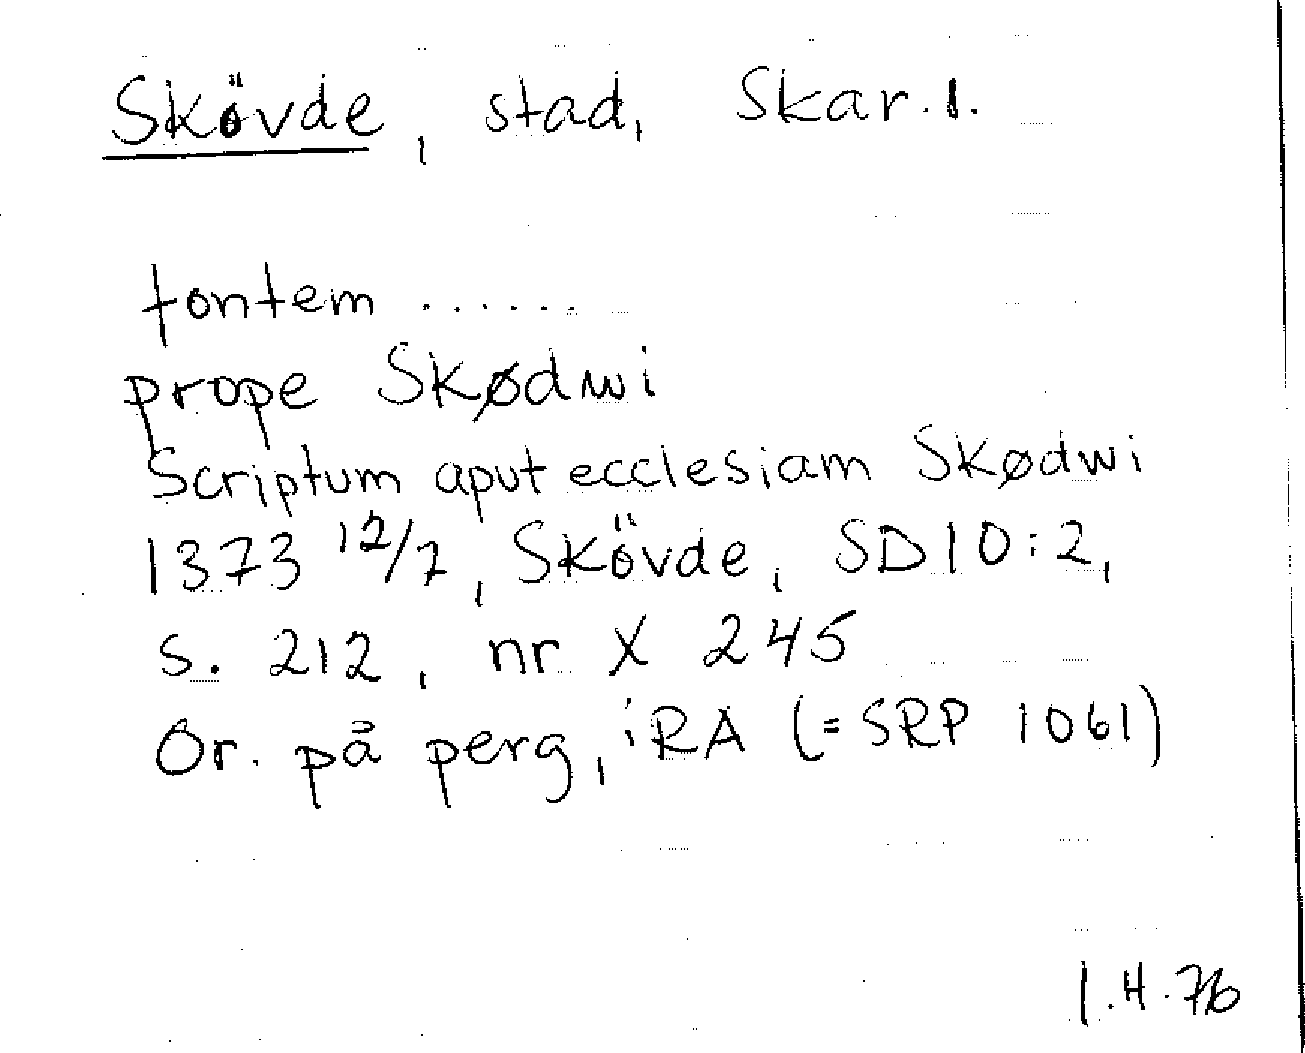 Skövde, stad, Skar. l.
fontem ......
prope Skødwi
Scriptum aput ecclesiam Skødwi
1373 12/7, Skövde, SD10:2,
s. 212, nr X 245
Or. på perg, i RA (= SRP 1061)
I.H. 76